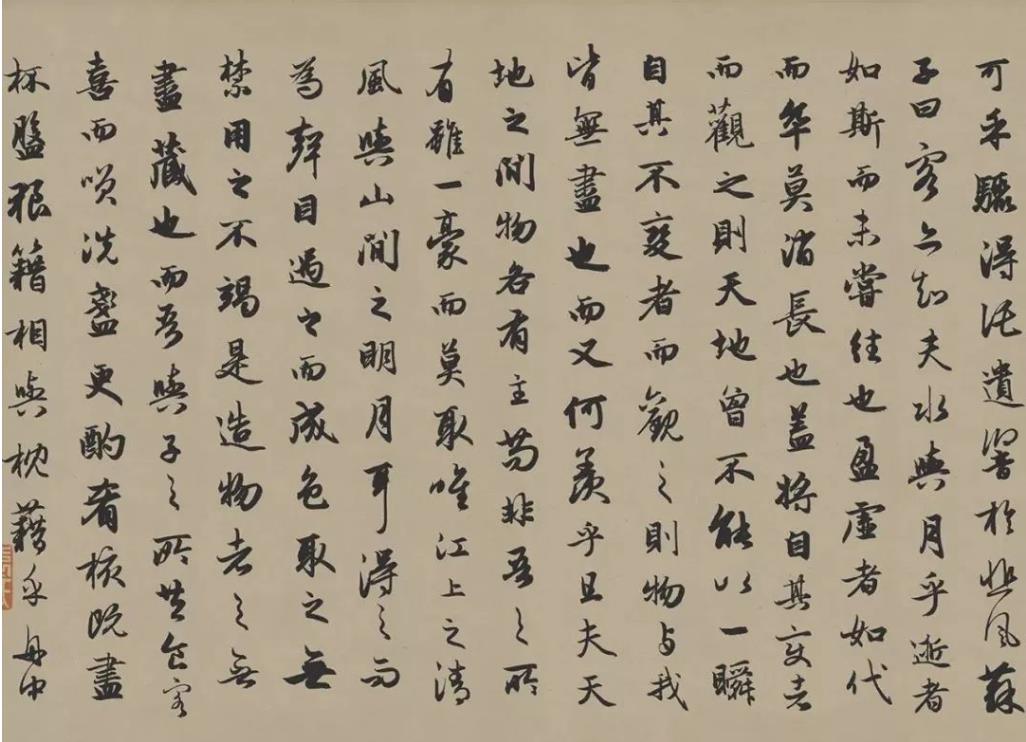 可乎驟得託遺響於悲風蘇
子曰客亦知夫水與月乎逝者
如斯而未嘗往也盈虛者如代
而卒莫消長也蓋將自其變者
而觀之則天地曾不能以一瞬
自其不變者而觀之則物與我
皆無盡也而又何羨乎且夫天
地之間物各有主苟非吾之所
有雖一豪而莫取唯江上之清
風與山間之明月耳得之而
為聲目遇之而成色取之無
禁用之不竭是造物者之無
盡藏也而吾與子之所共食客
喜而笑洗盞更酌肴核既盡
杯盤狼籍相與枕藉乎舟中